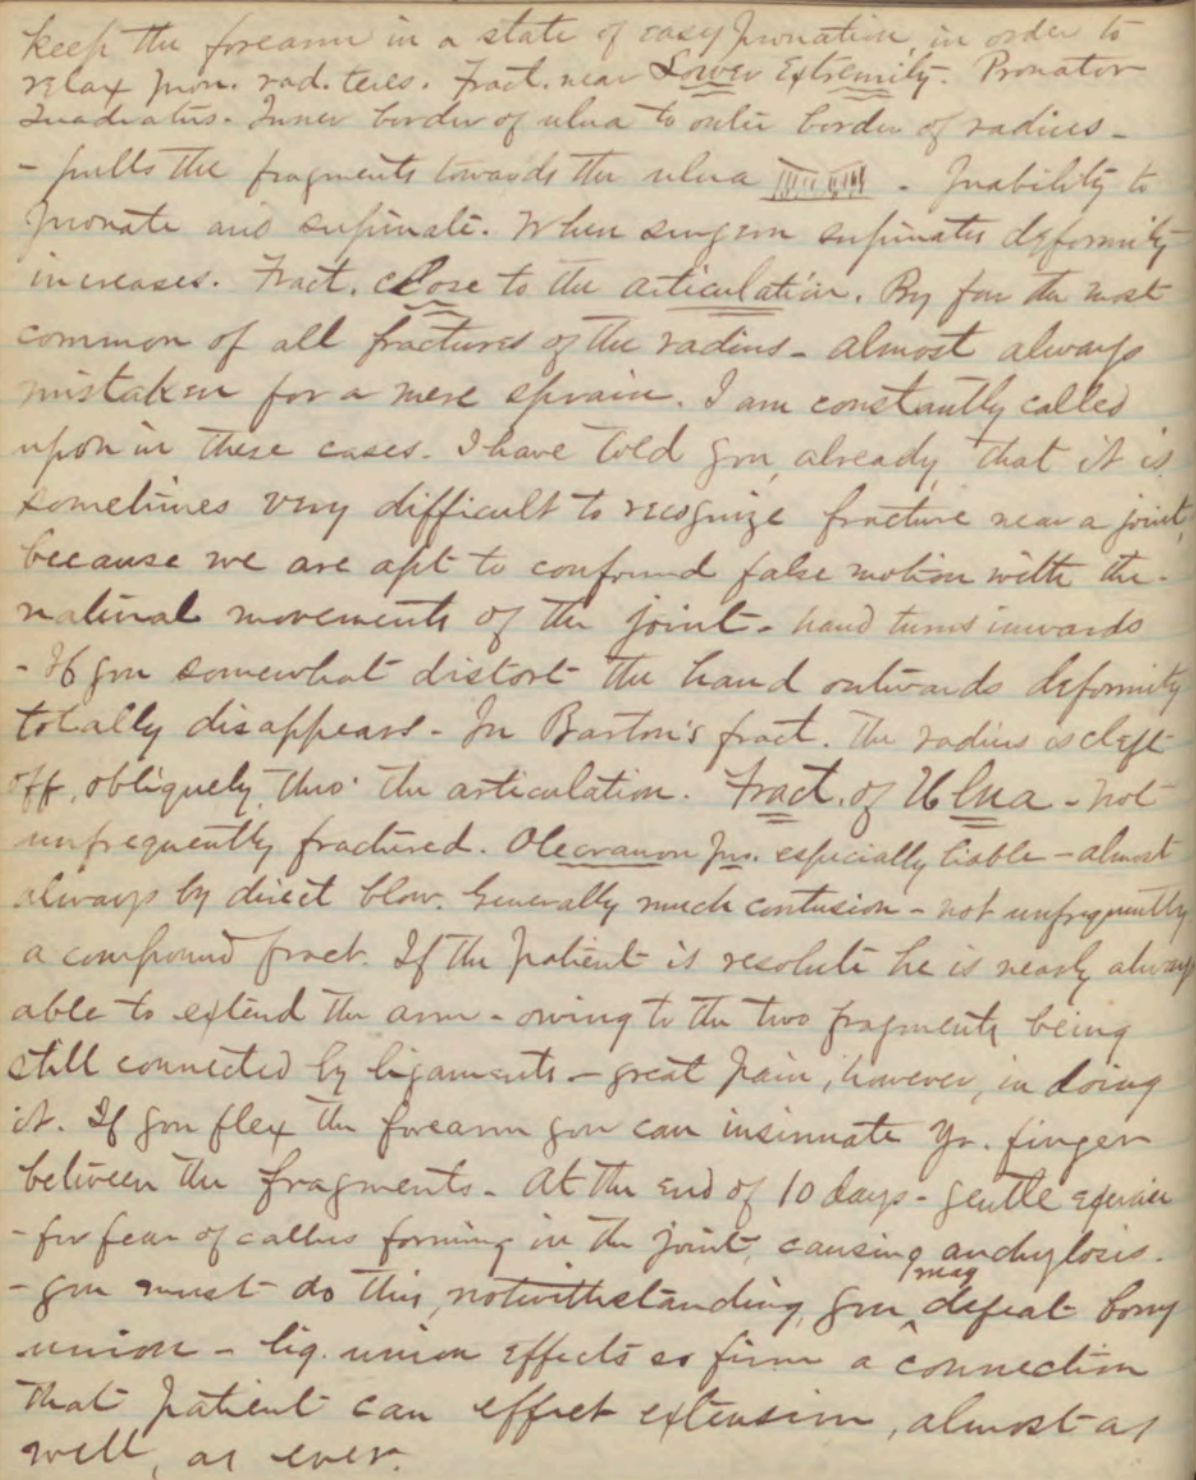 keep the forearm in a state of easy pronation, in order to
relax pron. rad. teres. Fract. near Lower Extremity. Pronator
Quadratus. Inner border of ulna to outer border of radius -
- pulls the fragments towards the ulna - Inability to
pronate and supinate. When surgeon supinates deformity
increases. Fract. close to the articulation. By far the most
common of all fractures of the radius - almost always
mistaken for a mere sprain. I am constantly called
upon in these cases. I have told you, already, that it is
sometimes very difficult to recognize fracture near a joint,
because we are apt to confound false motion with the
natural movements of the joint - hand turns inwards
- If you somewhat distort the hand outwards deformity
totally disappears - In Barton's fract. the radius is cleft
off, obliquely, thro' the articulation. Fract. of Ulna - not
unfrequently fractured. Olecranon pro. especially liable - almost
always by direct blow. Generally much contusion - not unfrequently
a compound fract. If the patient is resolute he is nearly always
able to extend the arm - owing to the two fragments being
still connected by ligaments - great pain, however, in doing
it. If you flex the forearm you can insinuate yr. finger
between the fragments. At the end of 10 days - gentle exercise
- for fear of callus forming in the joint, causing anchylosis.
- you must do this, notwithstanding, you may defeat bony
union - lig. union effects so firm a connection
that patient can effect extension, almost as
well, as ever.